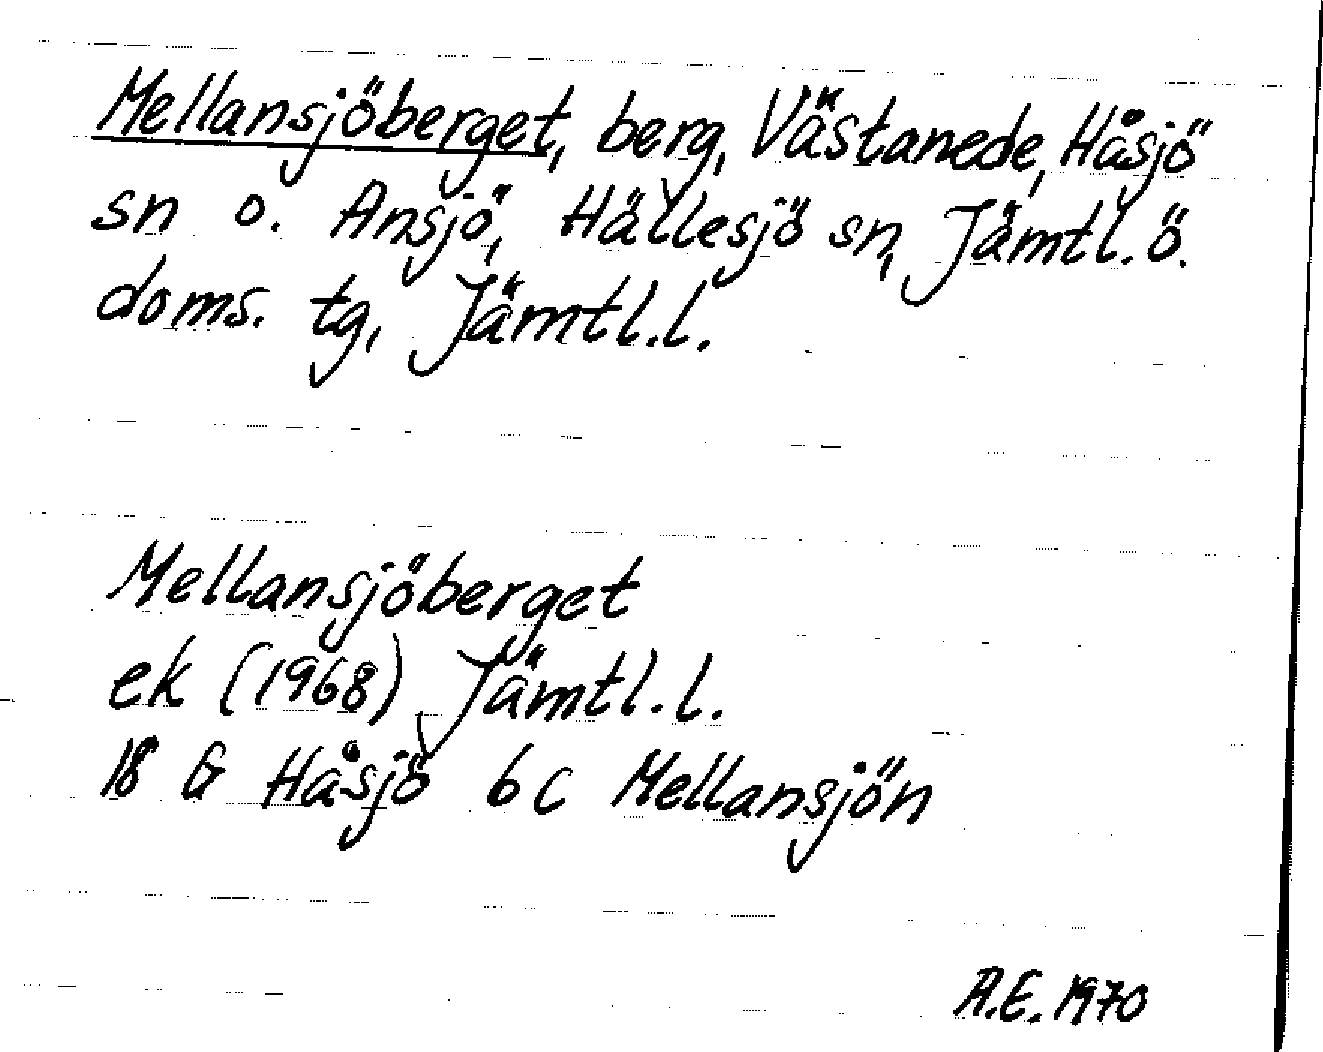 Mellansjöberget, berg, Västanede, Håsjö
sn o. Ansjö, Hällesjö sn, Jämtl. ö.
doms. tg, Jämtl.l.
Mellansjöberget
ek (1968) Jämtl.l.
18 G Håsjö 6 c Mellansjön
A.E. 1970